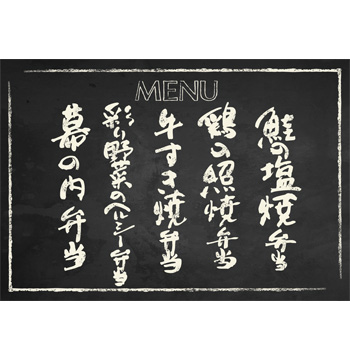 MENU
鮭の塩焼弁当
鶏の照焼弁当
牛すき焼弁当
彩り野菜のヘルシー弁当
幕の内弁当